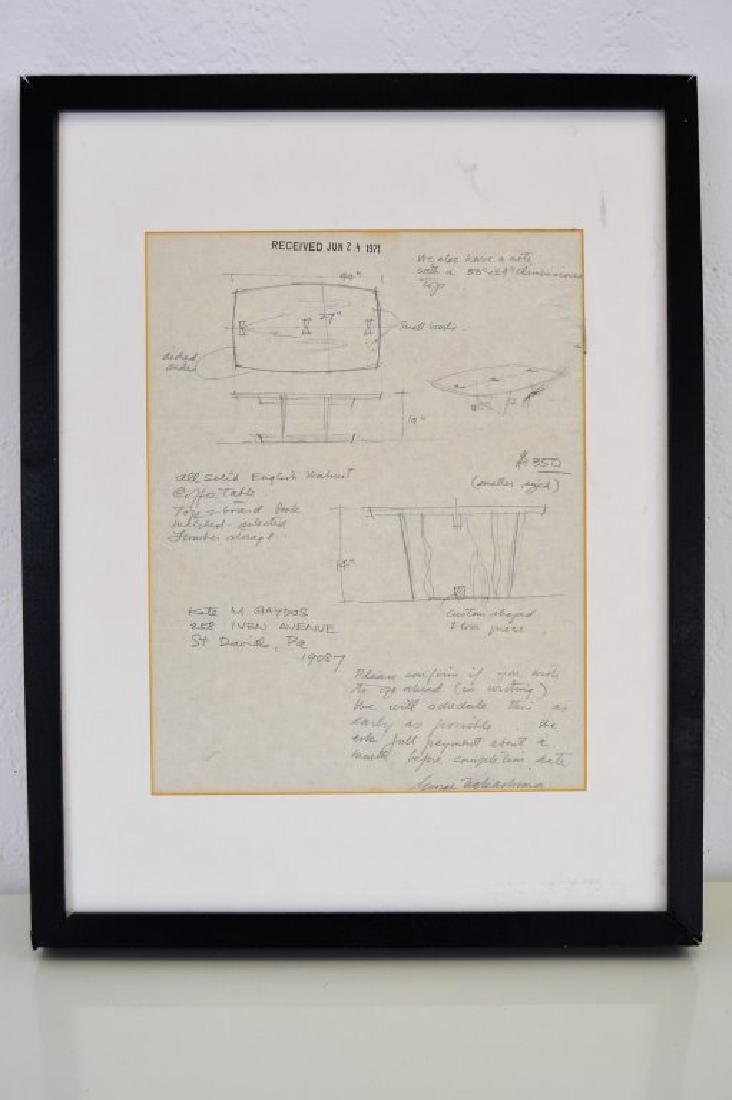 RECEIVED JUN 24 1971
We also have a note
with a 50" x 29"
Top
40"
27"
Small
10"
$ 350
(smaller sized)
All solid English Walnut
Coffee Table
Top 2 board book
matched - selected
Lumber storage
15"
Custom shaped
base piece
Kate M GAYDOS
258 IVEN AVENUE
St Davids, Pa
19087
Please confirm if you wish
to go ahead (in writing)
We will schedule this as
early as possible We
ask full payment about a
month before completion date
George Nakashima